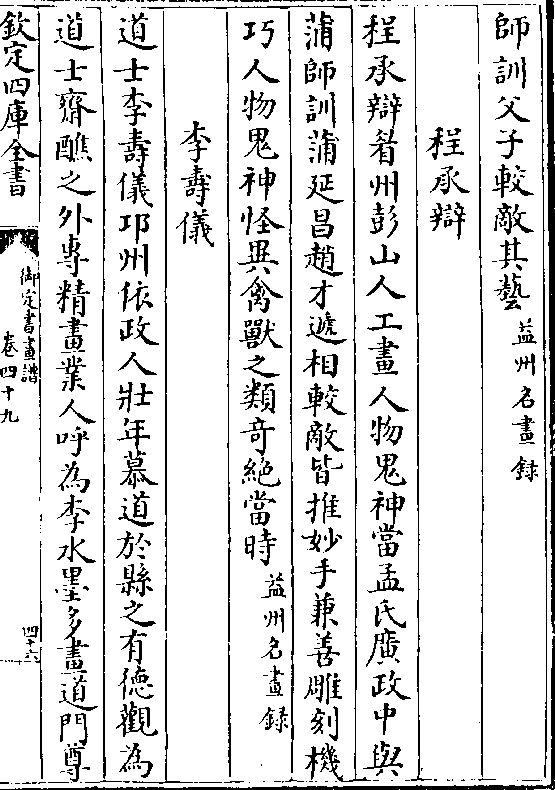 師訓父子較敵其藝益州名畫録
程承辯
程承辯眉州彭山人工畫人物鬼神當孟氏廣政中與
蒲師訓蒲延昌趙才遞相較敵皆推妙手兼善雕刻機
巧人物鬼神怪異禽獸之類奇絶當時益州名畫録
李壽儀
道士李壽儀邛州依政人壯年慕道於縣之有德觀為
道士齋醮之外專精畫業人呼為李水墨多畫道門尊
欽定四庫全書
御定書畫譜
卷四十九
四十六